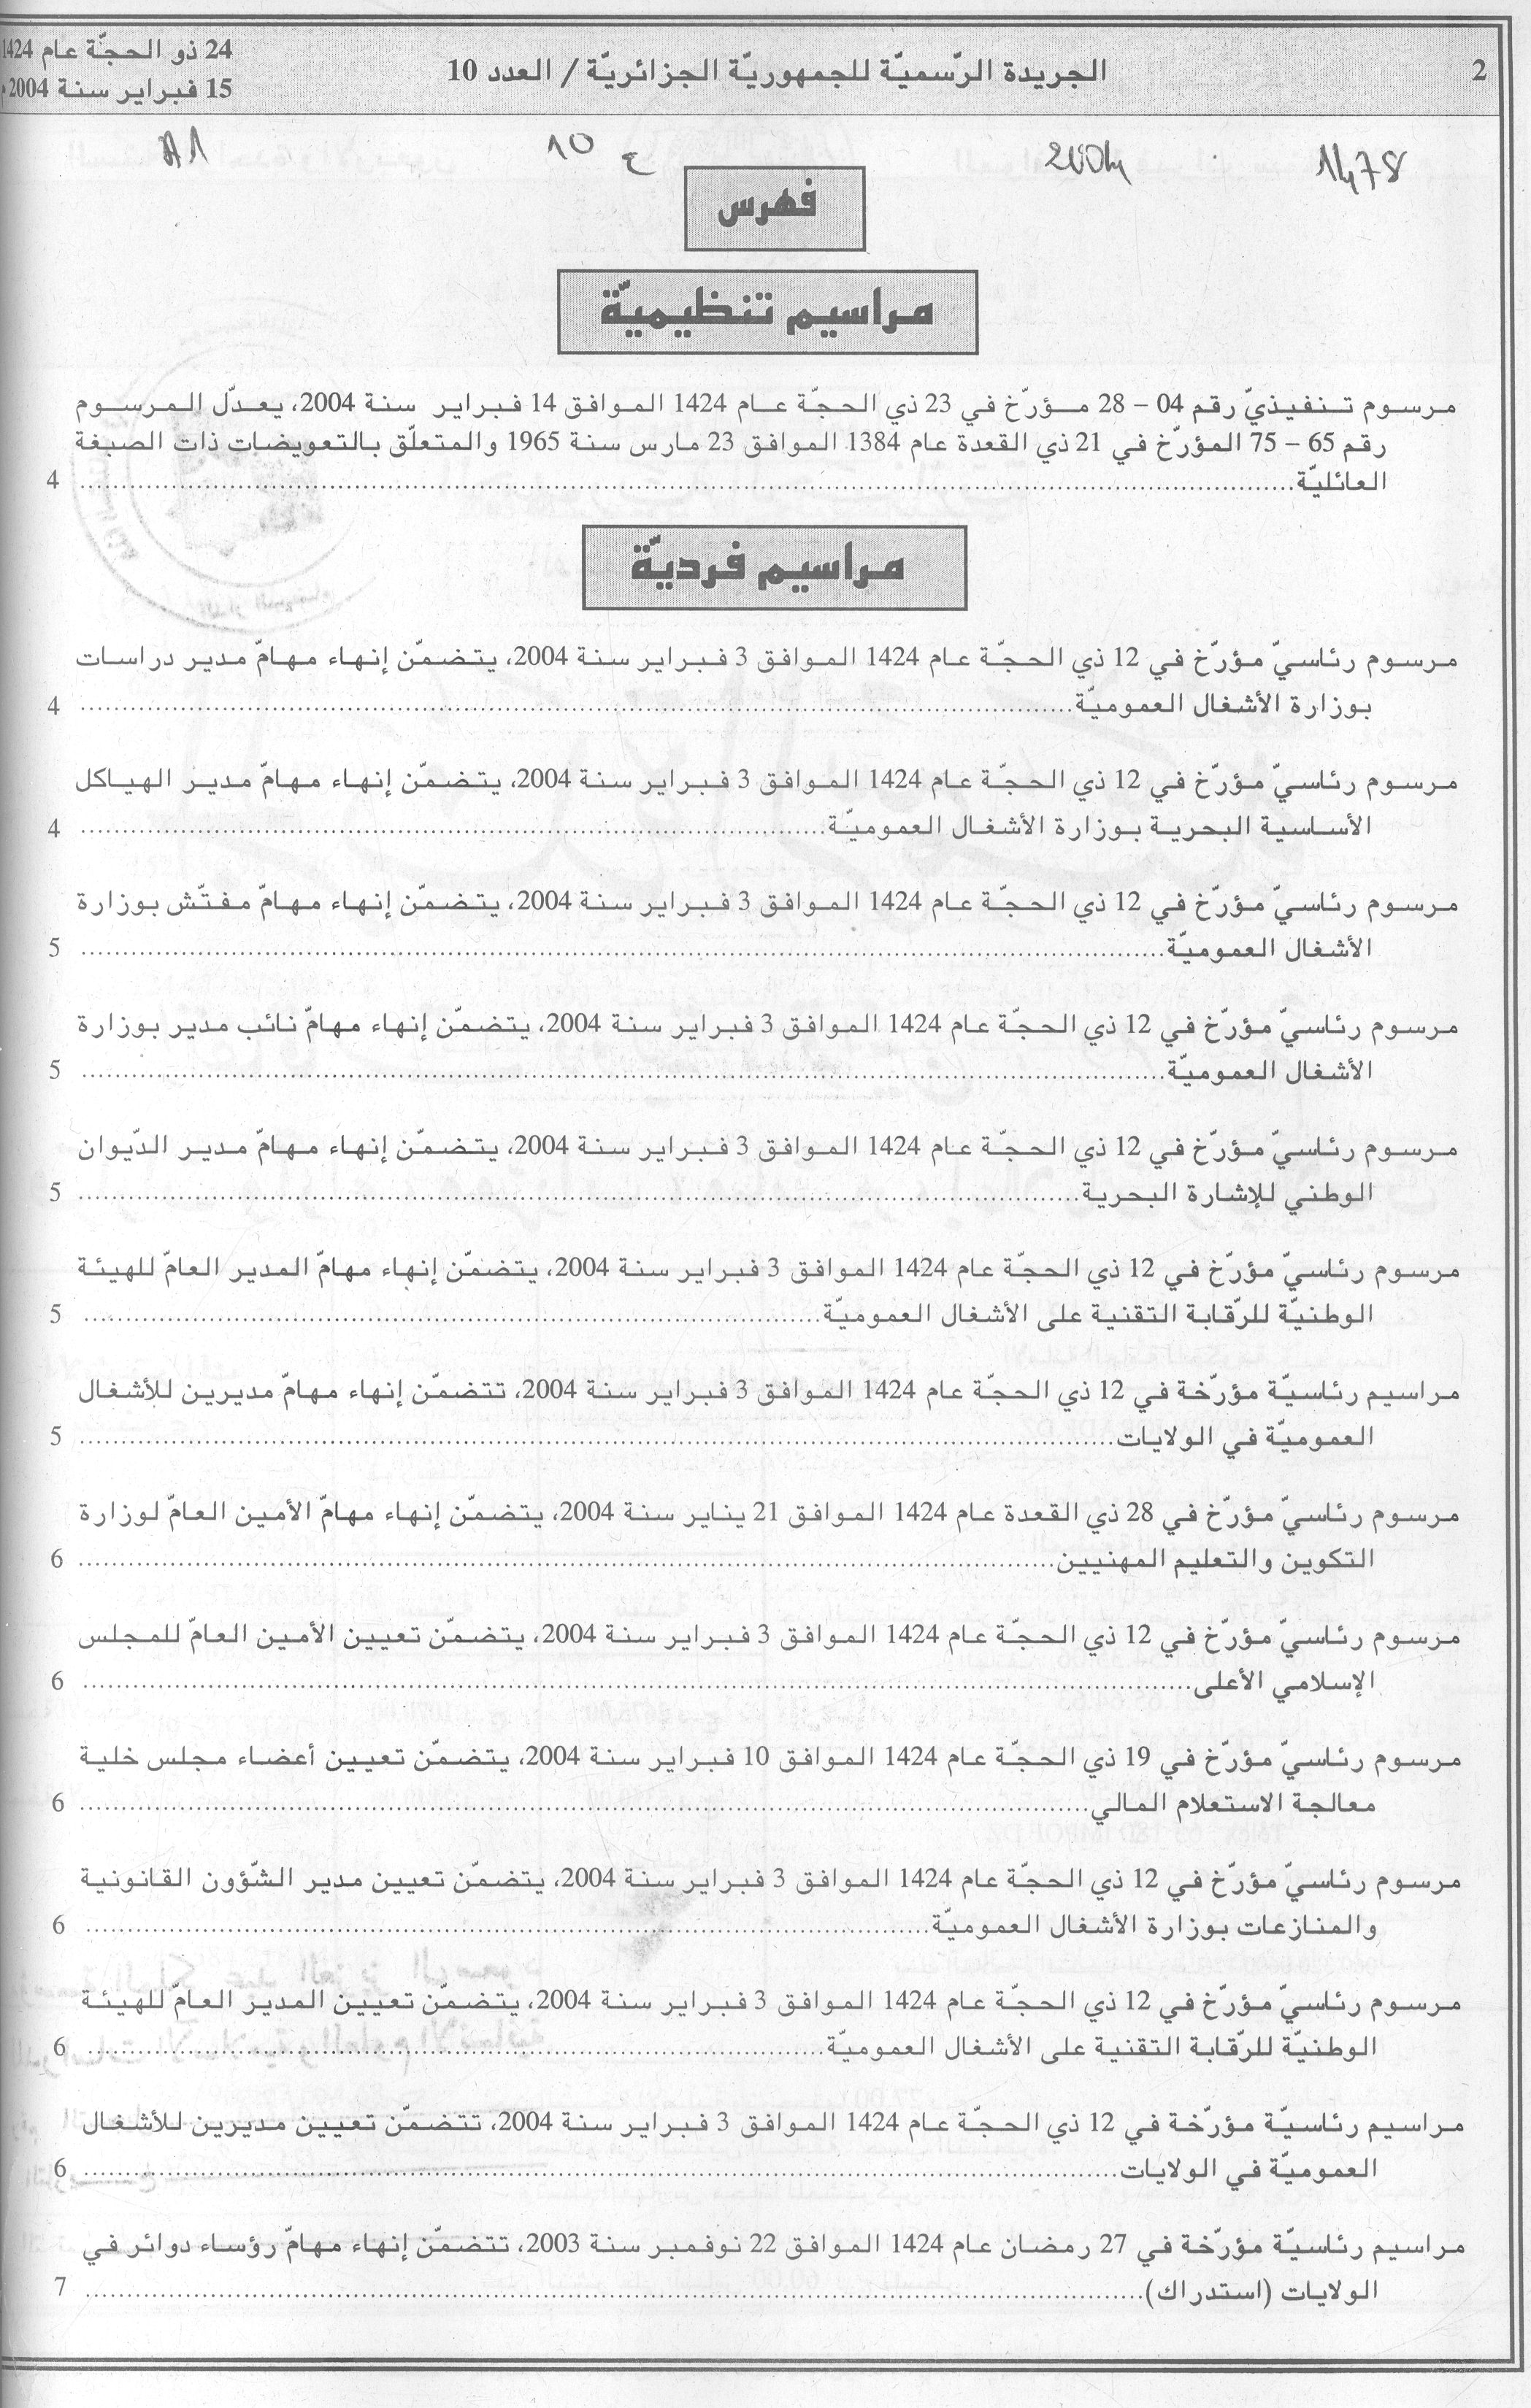 2
الجريدة الرّسميّة للجمهوريّة الجزائريّة / العدد 10
24 ذو الحجّة عام 1424
15 فبراير سنة 2004 م
1478
2004
ع 10
A1
فهرس
مراسيم تنظيميّة
مرسوم تنفيذيّ رقم 04 – 28 مؤرّخ في 23 ذي الحجّة عام 1424 الموافق 14 فبراير سنة 2004، يعدّل المرسوم
رقم 65 – 75 المؤرّخ في 21 ذي القعدة عام 1384 الموافق 23 مارس سنة 1965 والمتعلّق بالتعويضات ذات الصبغة
العائليّة........ 4
مراسيم فرديّة
مرسوم رئاسيّ مؤرّخ في 12 ذي الحجّة عام 1424 الموافق 3 فبراير سنة 2004، يتضمّن إنهاء مهامّ مدير دراسات
بوزارة الأشغال العموميّة........ 4
مرسوم رئاسيّ مؤرّخ في 12 ذي الحجّة عام 1424 الموافق 3 فبراير سنة 2004، يتضمّن إنهاء مهامّ مدير الهياكل
الأساسية البحرية بوزارة الأشغال العموميّة........ 4
مرسوم رئاسيّ مؤرّخ في 12 ذي الحجّة عام 1424 الموافق 3 فبراير سنة 2004، يتضمّن إنهاء مهامّ مفتّش بوزارة
الأشغال العموميّة........ 5
مرسوم رئاسيّ مؤرّخ في 12 ذي الحجّة عام 1424 الموافق 3 فبراير سنة 2004، يتضمّن إنهاء مهامّ نائب مدير بوزارة
الأشغال العموميّة........ 5
مرسوم رئاسيّ مؤرّخ في 12 ذي الحجّة عام 1424 الموافق 3 فبراير سنة 2004، يتضمّن إنهاء مهامّ مدير الدّيوان
الوطني للإشارة البحرية........ 5
مرسوم رئاسيّ مؤرّخ في 12 ذي الحجّة عام 1424 الموافق 3 فبراير سنة 2004، يتضمّن إنهاء مهامّ المدير العامّ للهيئة
الوطنيّة للرّقابة التقنية على الأشغال العموميّة........ 5
مراسيم رئاسيّة مؤرّخة في 12 ذي الحجّة عام 1424 الموافق 3 فبراير سنة 2004، تتضمّن إنهاء مهامّ مديرين للأشغال
العموميّة في الولايات........ 5
مرسوم رئاسيّ مؤرّخ في 28 ذي القعدة عام 1424 الموافق 21 يناير سنة 2004، يتضمّن إنهاء مهامّ الأمين العامّ لوزارة
التكوين والتعليم المهنيين........ 6
مرسوم رئاسيّ مؤرّخ في 12 ذي الحجّة عام 1424 الموافق 3 فبراير سنة 2004، يتضمّن تعيين الأمين العامّ للمجلس
الإسلامي الأعلى........ 6
مرسوم رئاسيّ مؤرّخ في 19 ذي الحجّة عام 1424 الموافق 10 فبراير سنة 2004، يتضمّن تعيين أعضاء مجلس خلية
معالجة الاستعلام المالي........ 6
مرسوم رئاسيّ مؤرّخ في 12 ذي الحجّة عام 1424 الموافق 3 فبراير سنة 2004، يتضمّن تعيين مدير الشّؤون القانونية
والمنازعات بوزارة الأشغال العموميّة........ 6
مرسوم رئاسيّ مؤرّخ في 12 ذي الحجّة عام 1424 الموافق 3 فبراير سنة 2004، يتضمّن تعيين المدير العامّ للهيئة
الوطنيّة للرّقابة التقنية على الأشغال العموميّة........ 6
مراسيم رئاسيّة مؤرّخة في 12 ذي الحجّة عام 1424 الموافق 3 فبراير سنة 2004، تتضمّن تعيين مديرين للأشغال
العموميّة في الولايات........ 6
مراسيم رئاسيّة مؤرّخة في 27 رمضان عام 1424 الموافق 22 نوفمبر سنة 2003، تتضمّن إنهاء مهامّ رؤساء دوائر في
الولايات (استدراك)........ 7